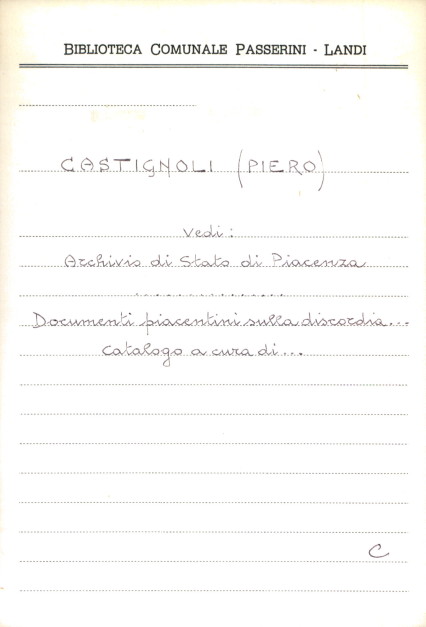 BIBLIOTECA COMUNALE PASSERINI - LANDI
CASTIGNOLI (PIERO)
Vedi:
Archivio di Stato di Piacenza
.............
Documenti piacentini sulla discordia...
catalogo a cura di...
C